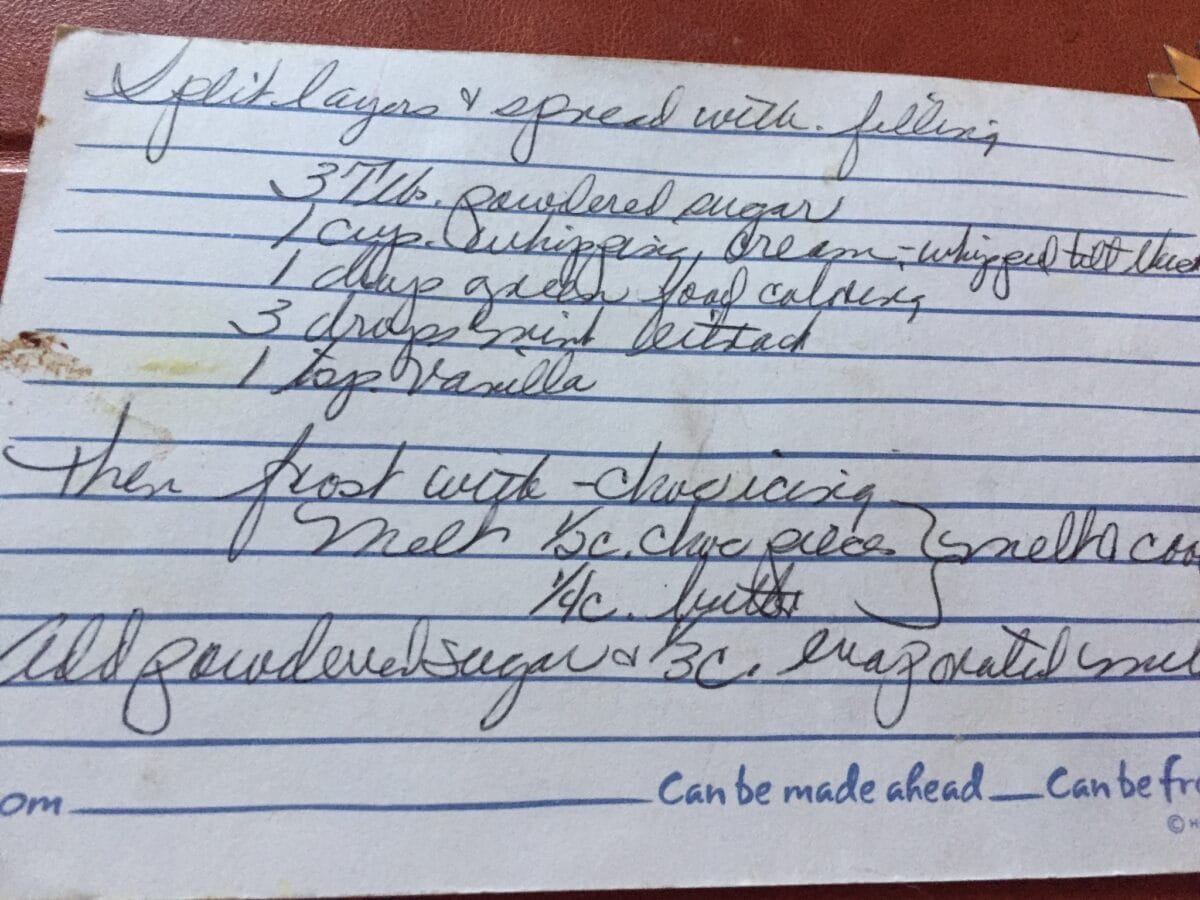 Split layers & spread with. filling
3 Tlb. powdered sugar
1 cup. whipping cream - whipped till thick
1 drop green food coloring
3 drops mint extract
1 tsp. vanilla
Then frost with - choc icing
Melt ½ c. choc pieces } melt & coo
¼ c. butter
Add powdered sugar & ⅓ c. evaporated mil
om
Can be made ahead Can be fro
© H